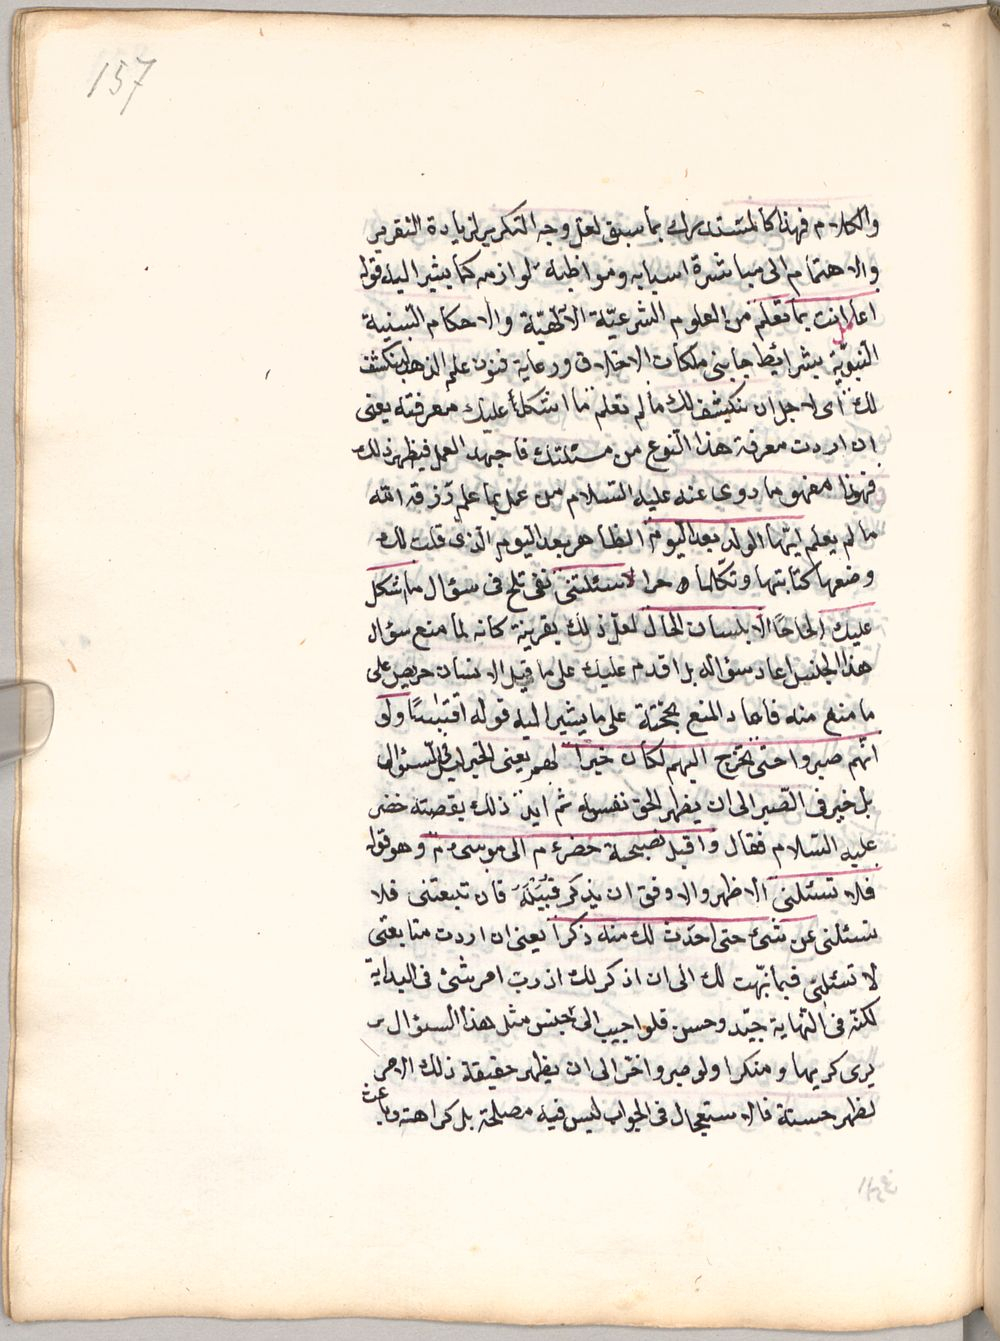 157
والكلام فهذا كالمستدرك بما سبق لعل وجه التكرير لزيادة التقرير
والاهتمام الى مباشرة اسبابه ومواظبة لوازمه كما يشير اليه قوله
اعمل انت بما تعلم من العلوم الشرعيّة الالهيّة والاحكام السنية
النبويّة بشرائط جانبى ملكات الاخلاق ورعاية فنون علم الزهد لينكشف
لك اى لاجل ان ينكشف لك ما لم تعلم ما اشكل عليك معرفته يعنى
ان اردت معرفة هذا النوع من مسئلتك فاجهد العمل فيظهر ذلك
فهذا مفهوم ما روى عنه عليه السلام من عمل بما علم رزقه الله
ما لم يعلم ايّها الولد بعد اليوم الظاهر بعد اليوم الذى قلت لك
وضعها كتابتها وتكلما حرا لا تسئلنى نفى تلح فى سؤال ما اشكل
عليك الحاحًا الا بلسان الحال لعل ذلك بقرينة كانه لما منع سؤال
هذا الجنس اعاد سؤاله بل اقدم عليك على ما قيل الانسان حريص على
ما منع منه فاعاد المنع بحجّة على ما يشير اليه قوله اقتباسًا ولو
انّهم صبروا حتى تخرج اليهم لكان خيرا لهم يعنى الخير فى السؤال
بل خير فى الصبر الى ان يظهر الحق نفسه ثم ايد ذلك بقصته خضر
عليه السلام فقال واقبل نصيحة خضر ع م الى موسى ع م وهو قوله
فلا تسئلنى الاظهر والاوفق ان يذكر قبيله فان تبعتنى فلا
تسئلنى عن شئ حتى احدث لك منه ذكرا يعنى ان اردت متابعتى
لا تسئلنى فيما نبّهت لك الى ان اذكر لك اذ ربّ امر شئ فى البداية
لكنّه فى النهاية جيّد وحسن فلو اجيب الى جنس مثل هذا السؤال
يرى كريها ومنكرا ولو صبر واخر الى ان يظهر حقيقة ذلك الامر
لظهر حسنة فالاستعجال فى الجواب ليس فيه مصلحة بل كراهته وباعث